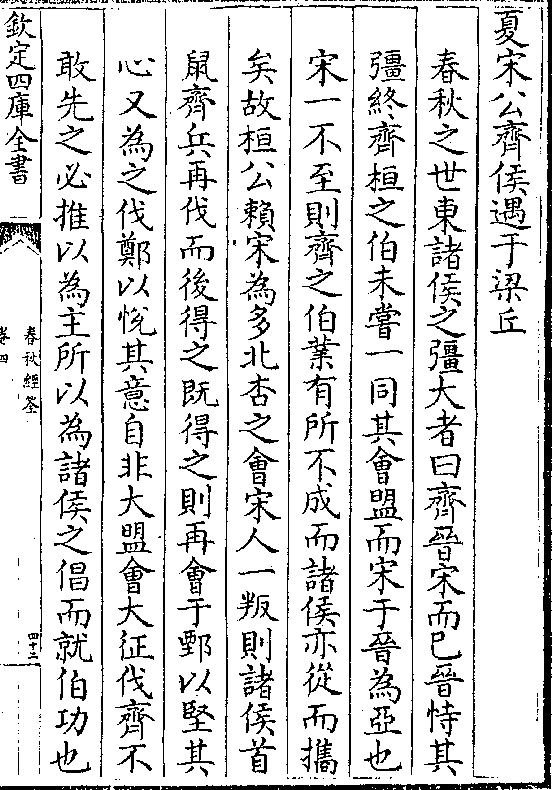 夏宋公齊侯遇于梁丘
春秋之世東諸侯之彊大者曰齊晉宋而已晉恃其
彊終齊桓之伯未嘗一同其會盟而宋于晉為亞也
宋一不至則齊之伯業有所不成而諸侯亦從而攜
矣故桓公賴宋為多北杏之會宋人一叛則諸侯首
鼠齊兵再伐而後得之既得之則再會于鄄以堅其
心又為之伐鄭以悅其意自非大盟會大征伐齊不
敢先之必推以為主所以為諸侯之倡而就伯功也
欽定四庫全書
春秋經筌
卷四
四十二